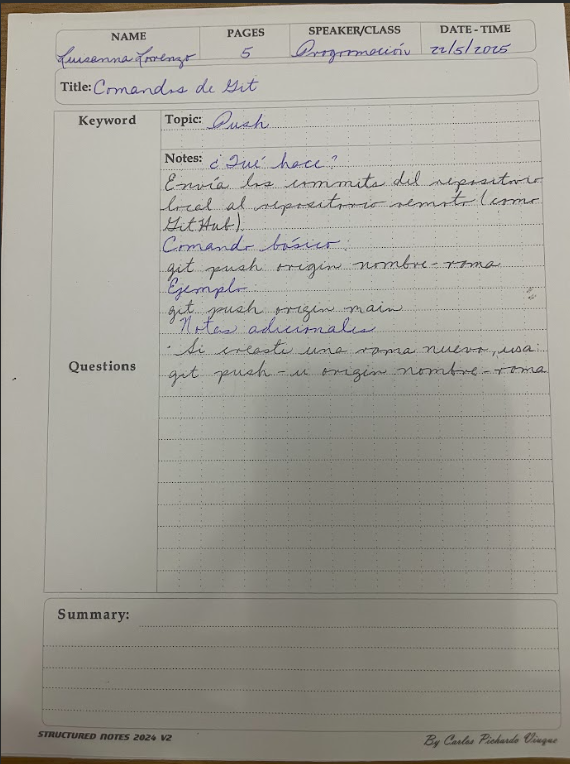 NAME PAGES SPEAKER/CLASS DATE-TIME
Luisanna Lorenzo 5 Programación 22/5/2025
Title: Comandos de Git
Keyword
Topic: Push
Notes: ¿Qué hace?
Envía los commits del repositorio
local al repositorio remoto (como
GitHub).
Comando básico:
git push origin nombre-rama
Ejemplo:
git push origin main
Notas adicionales
· Si creaste una rama nueva, usa:
Questions
git push -u origin nombre-rama
Summary:
STRUCTURED NOTES 2024 V2
By Carlos Pichardo Viuque